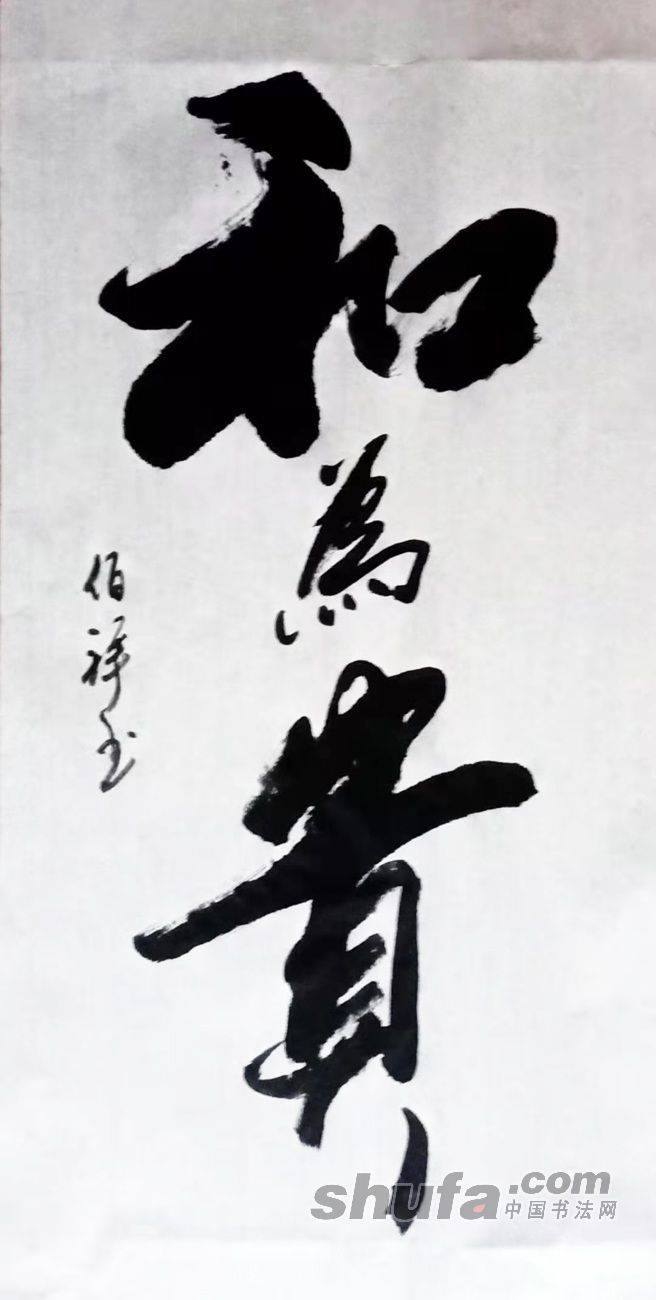 和為貴
伯祥书
shufa.com
中国书法网